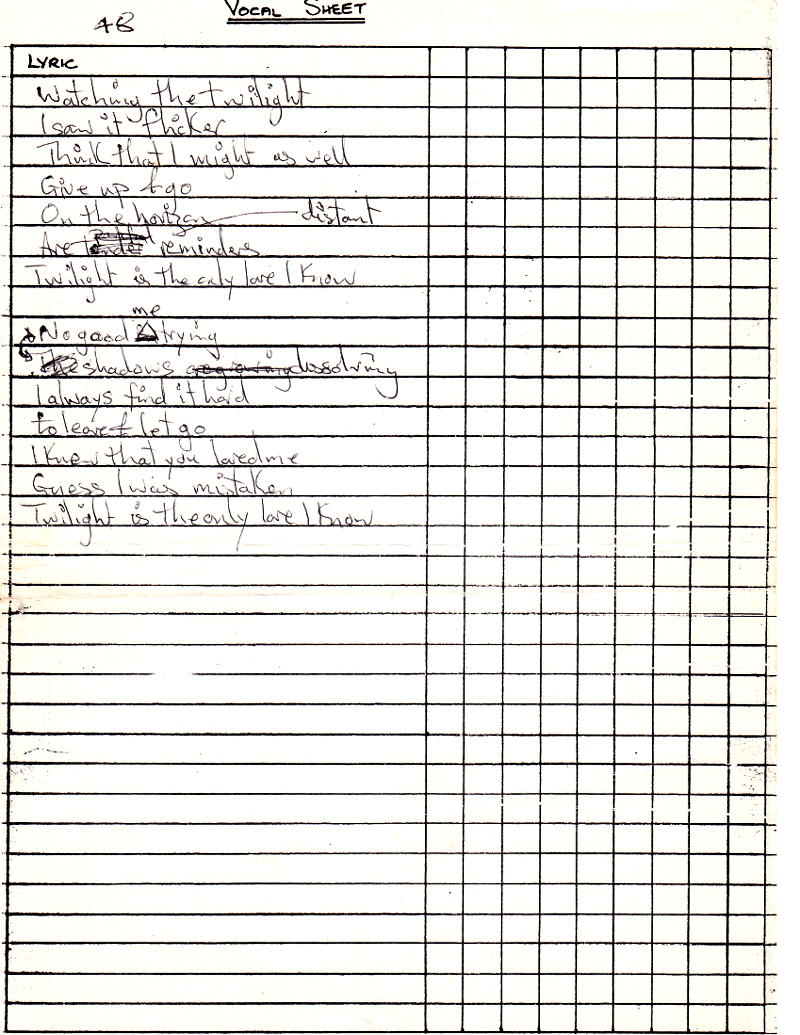 VOCAL SHEET
48
LYRIC
Watching the twilight
I saw it flicker
Think that I might as well
Give up & go
On the horizon distant
Are reminders
Twilight is the only love I know
me
No good trying
The shadows dissolving
I always find it hard
to leave & let go
I knew that you loved me
Guess I was mistaken
Twilight is the only love I know